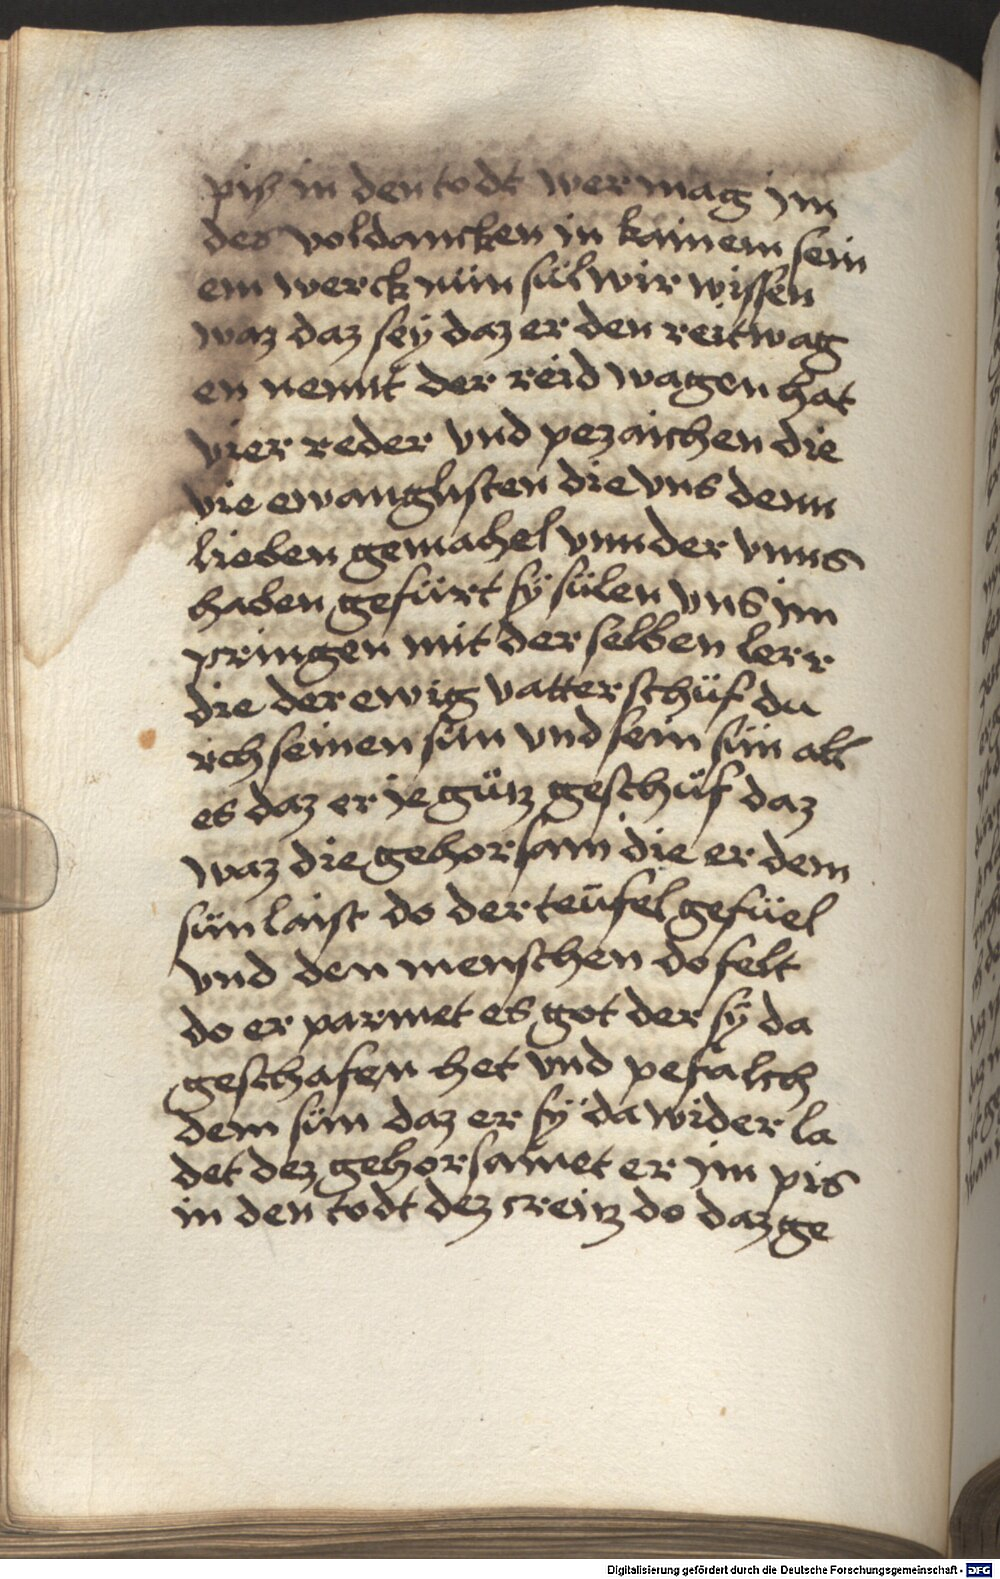 pis in den todt wer mag im
des voldancken in kainem sein
em werck nün sül wir wissen
waz daz sey daz er den reitwag
en nennt der reid wagen hat
vier reder vnd pezaichen die
vie ewanglisten die vns denn
lieben gemahel vnnder vnns
haben gefürt sÿ sülen vns im
pringen mit der selben lerr
die der ewig vatter schüf du
rch seinen sün vnd sein sün all
es daz er ie gütz geschüf daz
waz die gehorsam die er dem
sün laist do der teüfel gefüel
vnd den menschen do felt
do er parmet es got der sÿ da
geschafen het vnd pefalch
dem sün daz er sÿ da wider la
det dez gehorsamet er im pis
in den todt dez creitz do daz ge
Digitalisierung gefördert durch die Deutsche Forschungsgemeinschaft - DFG